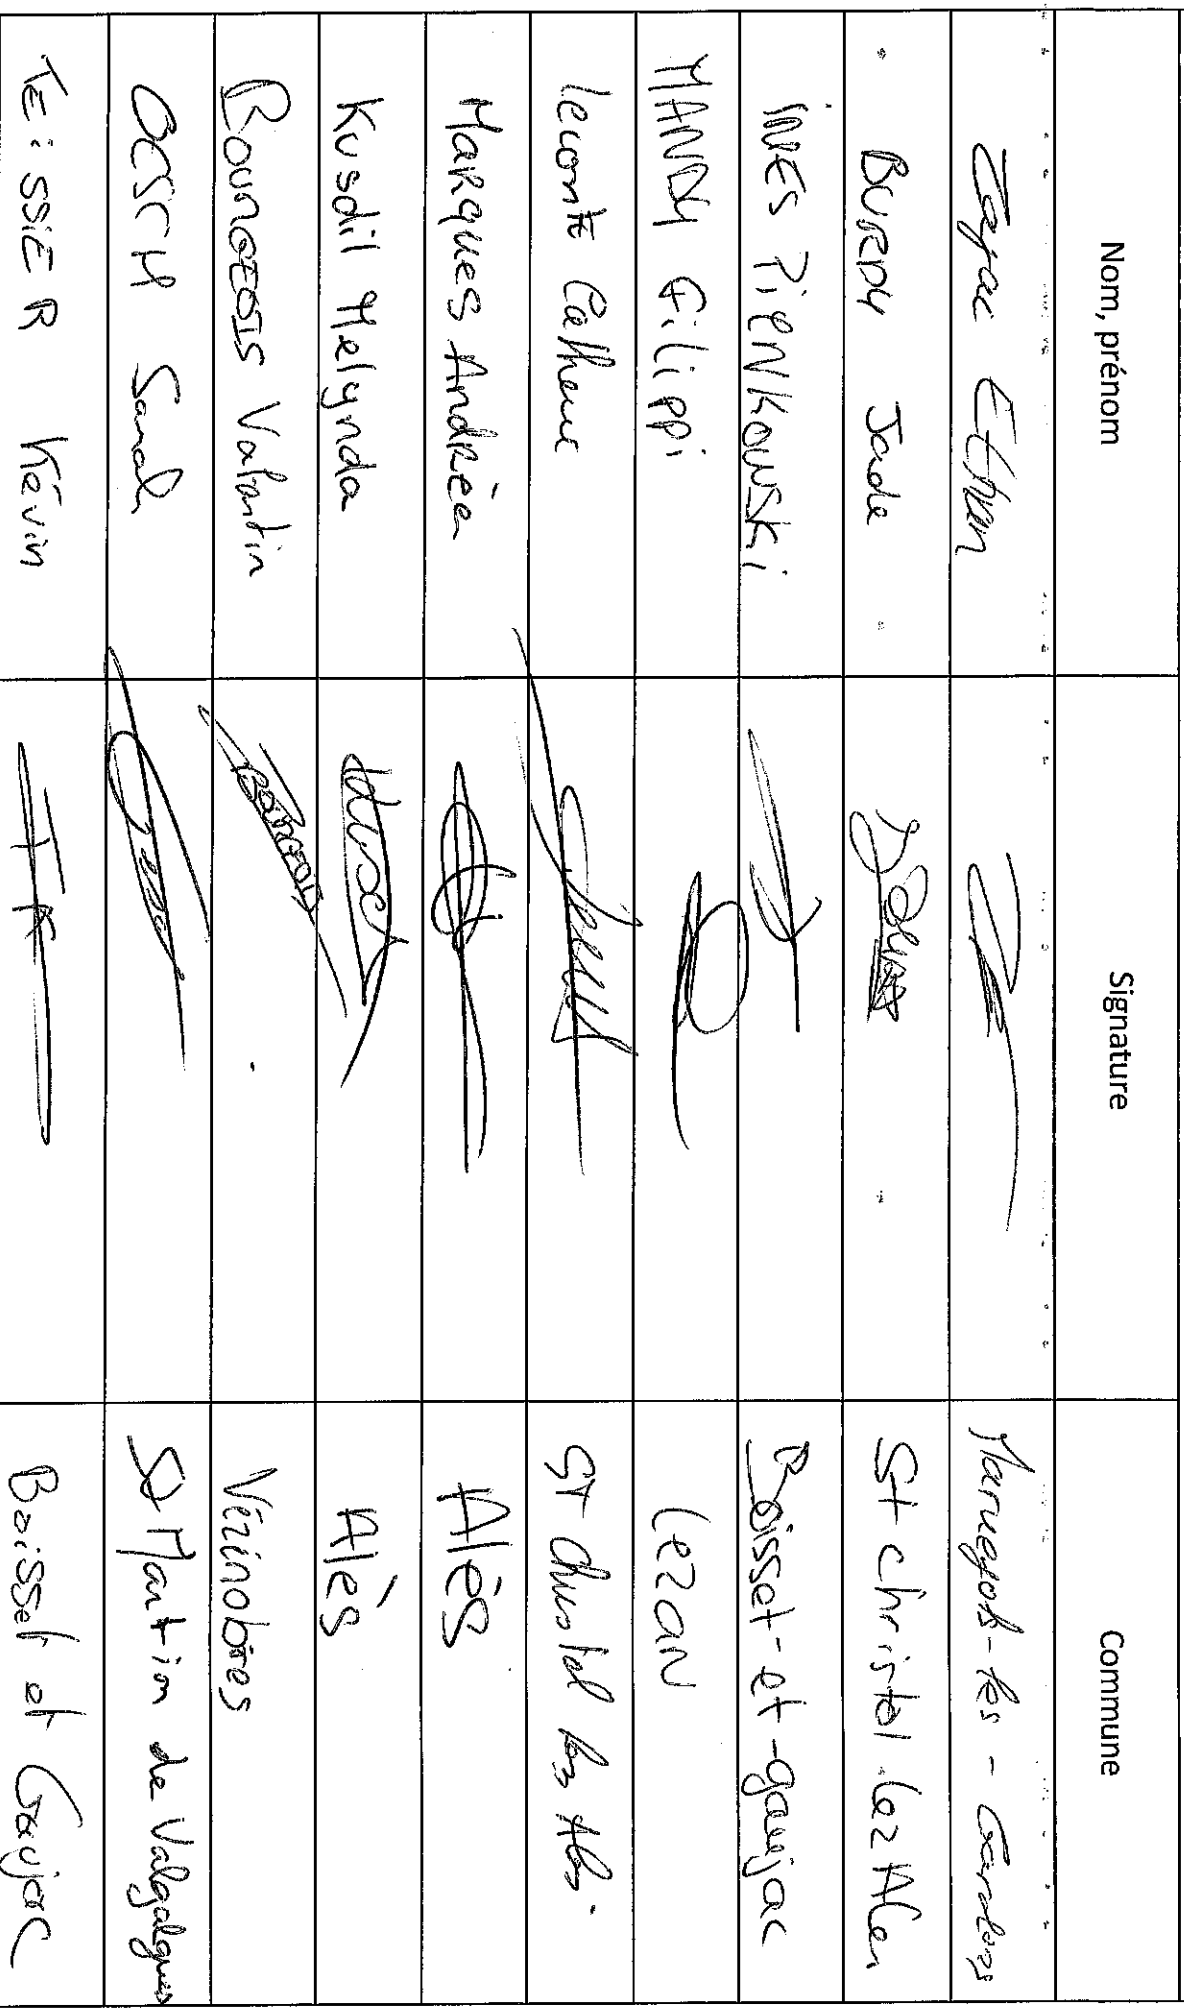 Nom, prénom Signature Commune
Zajac Ethan Maruejols-les-Gardons
BURDY Jade St christol lez Ales
INES PiENKOWSKi Boisset-et-gaujac
MANDY FiLippi Lezan
Leconte Catherine ST Christol les Ales.
MARQUES Andréa Alès
Kusdil Melynda Alès
BOURGEOIS Valantin Vézinobres
OESCH Sarah St Martin de Valgalgues
TEiSSiER Kévin TK Boisset et Gaujac